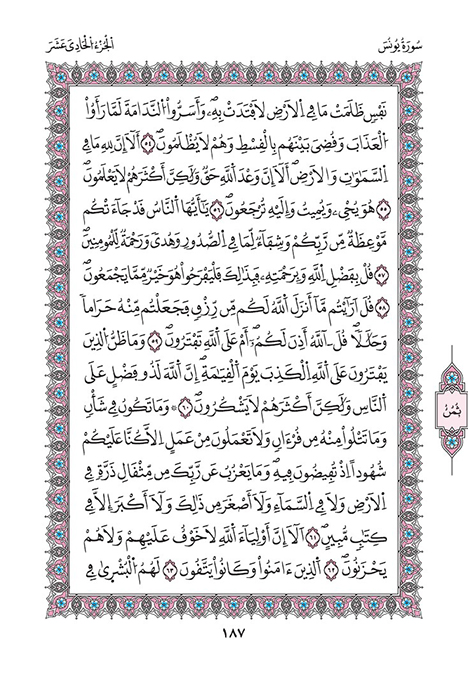 سُورَةُ يُونُسَ
الجُزْءُ الحَادِي عَشَرَ
نَفْسٖ ظَلَمَتْ مَا فِي اِ۬لَارْضِ لَافْتَدَتْ بِهِۦۖ وَأَسَرُّواْ اُ۬لنَّدَامَةَ لَمَّا رَأَوُاْ
اُ۬لْعَذَابَۖ وَقُضِيَ بَيْنَهُم بِالْقِسْطِ وَهُمْ لَا يُظْلَمُونَۖ ٥٤ أَلَآ إِنَّ لِلهِ مَا فِي
اِ۬لسَّمَٰوَٰتِ وَالَارْضِۖ أَلَآ إِنَّ وَعْدَ اَ۬للَّهِ حَقّٞ وَلَٰكِنَّ أَكْثَرَهُمْ لَا يَعْلَمُونَۖ
٥٥ هُوَ يُحْيِۦ وَيُمِيتُ وَإِلَيْهِ تُرْجَعُونَۖ ٥٦ يَٰٓأَيُّهَا اَ۬لنَّاسُ قَدْ جَآءَتْكُم
مَّوْعِظَةٞ مِّن رَّبِّكُمْ وَشِفَآءٞ لِّمَا فِي اِ۬لصُّدُورِ وَهُدىٗ وَرَحْمَةٞ لِّلْمُومِنِينَۖ
٥٧ قُلْ بِفَضْلِ اِ۬للَّهِ وَبِرَحْمَتِهِۦ فَبِذَٰلِكَ فَلْيَفْرَحُواْ هُوَ خَيْرٞ مِّمَّا يَجْمَعُونَۖ
٥٨ قُلَ اَرَٰٓيْتُم مَّآ أَنزَلَ اَ۬للَّهُ لَكُم مِّن رِّزْقٖ فَجَعَلْتُم مِّنْهُ حَرَاماٗ
وَحَلَٰلاٗۖ قُلَ ـ آللَّهُ أَذِنَ لَكُمُۥٓۖ أَمْ عَلَى اَ۬للَّهِ تَفْتَرُونَۖ ٥٩ وَمَا ظَنُّ اُ۬لذِينَ
يَفْتَرُونَ عَلَى اَ۬للَّهِ اِ۬لْكَذِبَ يَوْمَ اَ۬لْقِيَٰمَةِۖ إِنَّ اَ۬للَّهَ لَذُو فَضْلٍ عَلَى
اَ۬لنَّاسِ وَلَٰكِنَّ أَكْثَرَهُمْ لَا يَشْكُرُونَۖ ٦٠ ۞ وَمَا تَكُونُ فِي شَأْنٖ
وَمَا تَتْلُواْ مِنْهُ مِن قُرْءَانٖ وَلَا تَعْمَلُونَ مِنْ عَمَلٍ اِلَّا كُنَّا عَلَيْكُمْ
شُهُوداً اِذْ تُفِيضُونَ فِيهِۖ وَمَا يَعْزُبُ عَن رَّبِّكَ مِن مِّثْقَالِ ذَرَّةٖ فِي
اِ۬لَارْضِ وَلَا فِي اِ۬لسَّمَآءِ وَلَآ أَصْغَرَ مِن ذَٰلِكَ وَلَآ أَكْبَرَ إِلَّا فِي
كِتَٰبٖ مُّبِينٍۖ ٦١ اَلَآ إِنَّ أَوْلِيَآءَ اَ۬للَّهِ لَا خَوْفٌ عَلَيْهِمْ وَلَا هُمْ
يَحْزَنُونَۖ ٦٢ اَ۬لذِينَ ءَامَنُواْ وَكَانُواْ يَتَّقُونَ ٦٣ لَهُمُ اُ۬لْبُشْر۪ىٰ فِي
ثُمُنُ
١٨٧